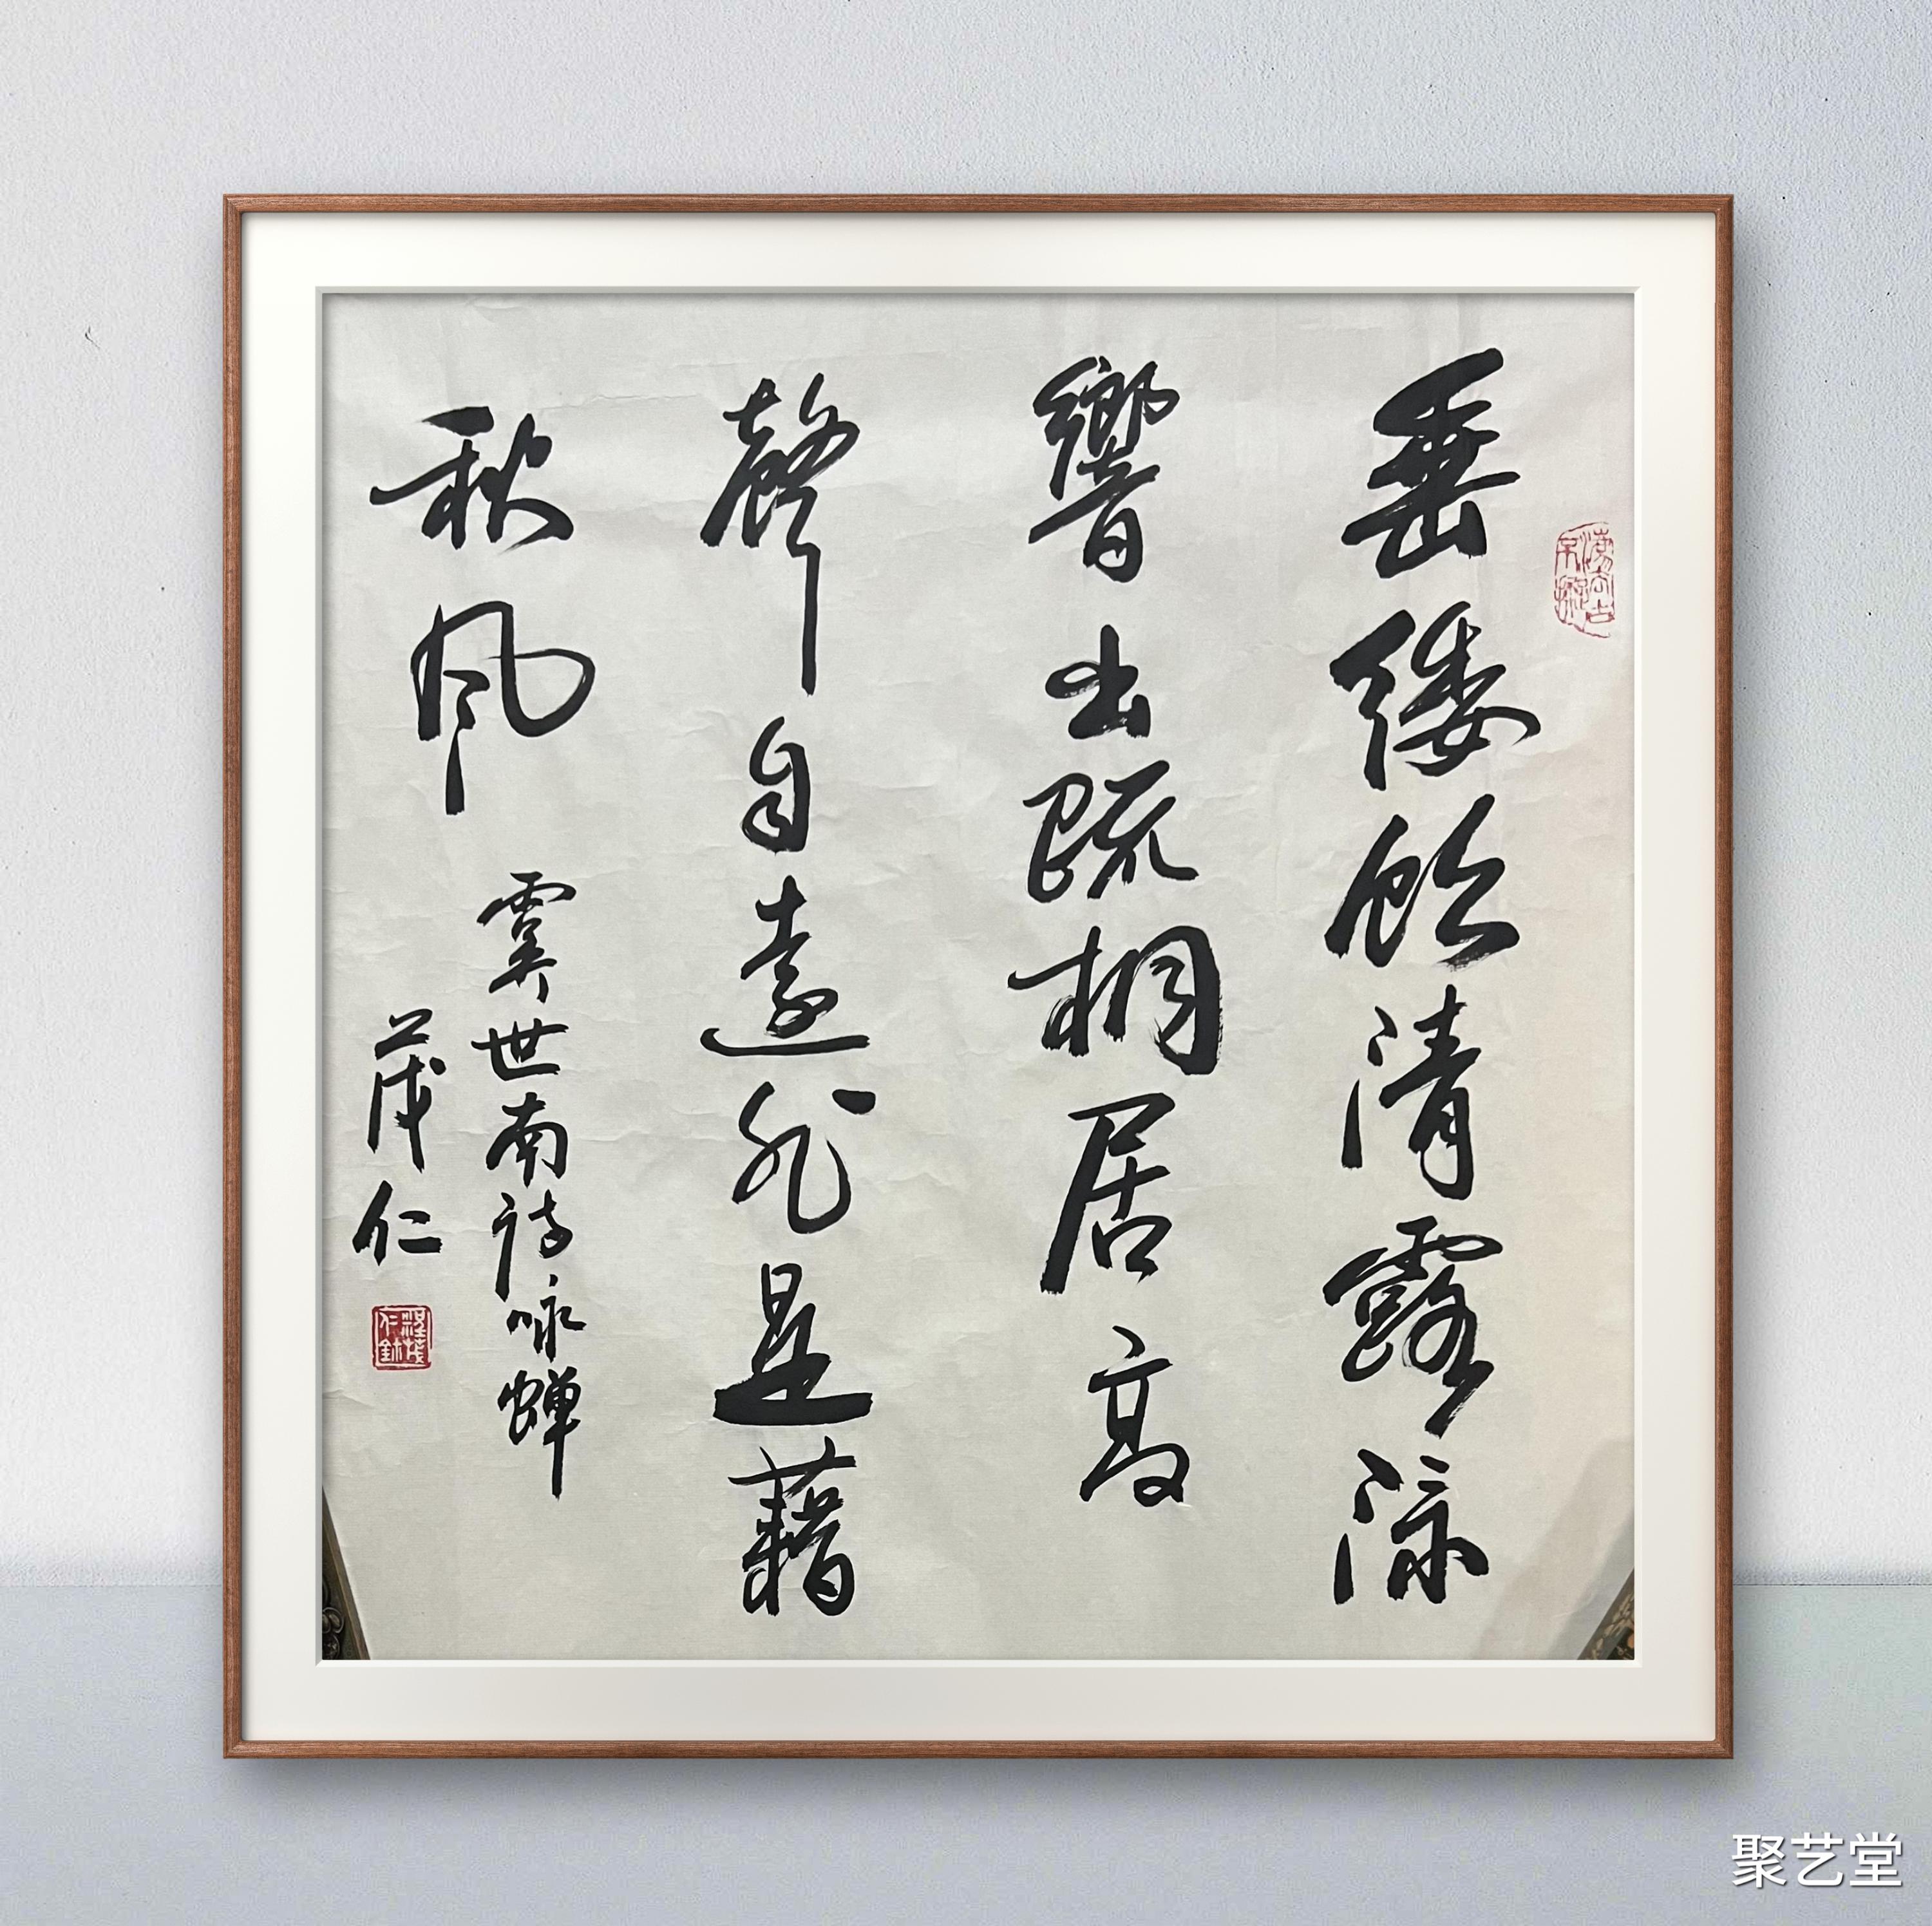 垂緌飲清露流
響出疏桐居高
聲自遠非是藉
秋風
虞世南诗咏蝉
茂仁
聚艺堂